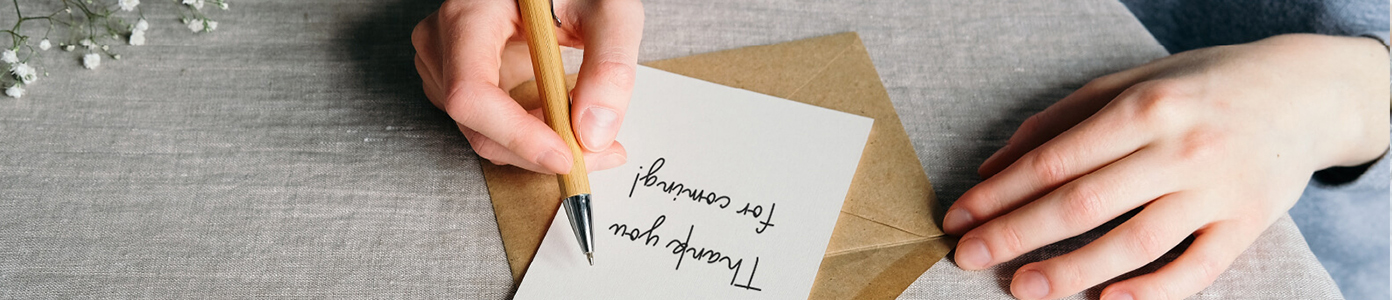 Thank you
for coming!